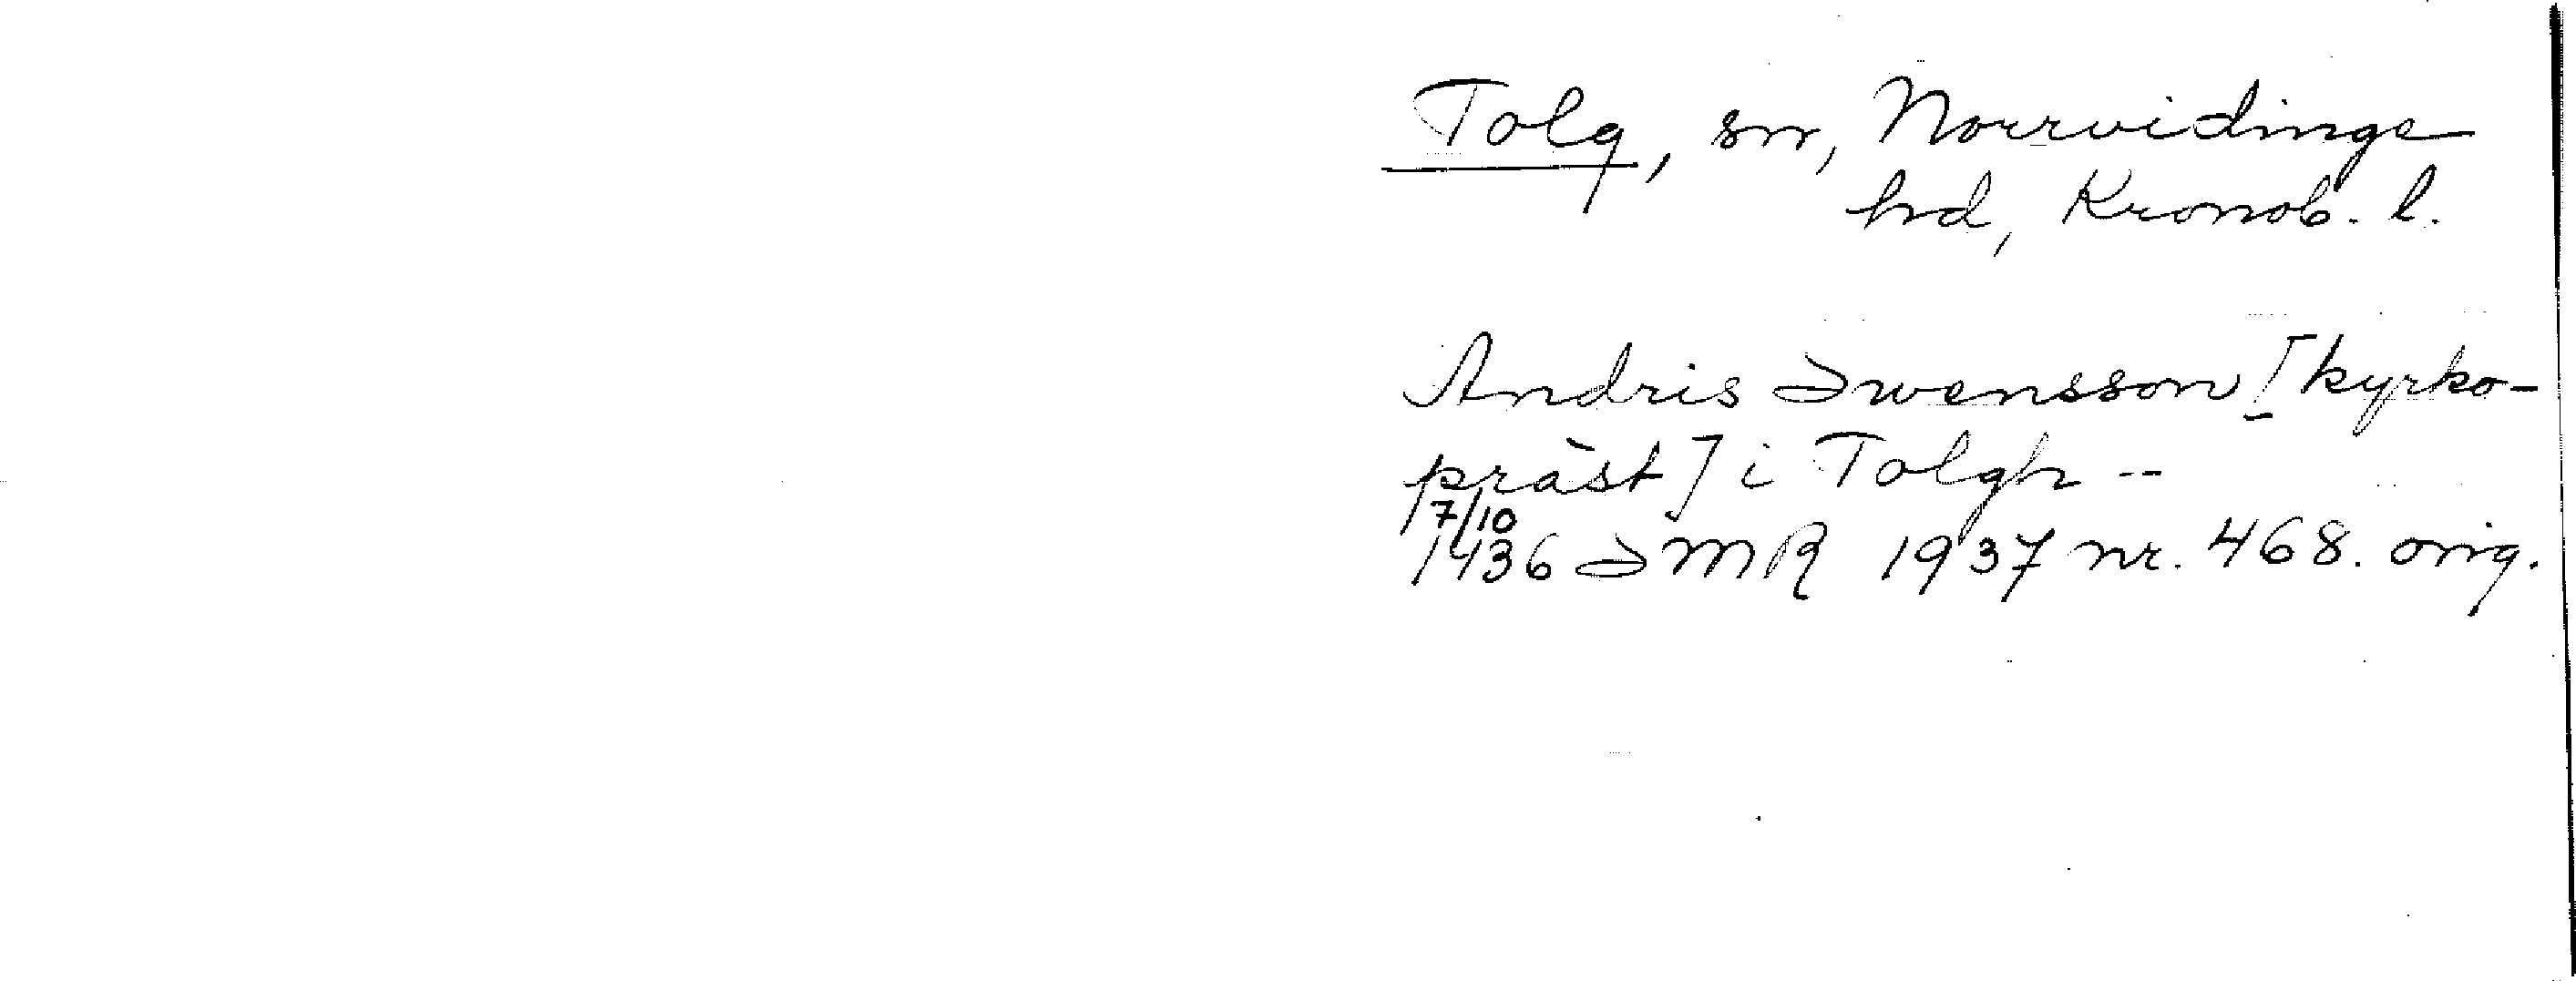 Tolg, sn, Norrvidinge
hd, Kronob. l.
Andris Swensson [kyrko-
präst] i Tolgh --
7/10
1436 SMR 1937 nr. 468. orig.